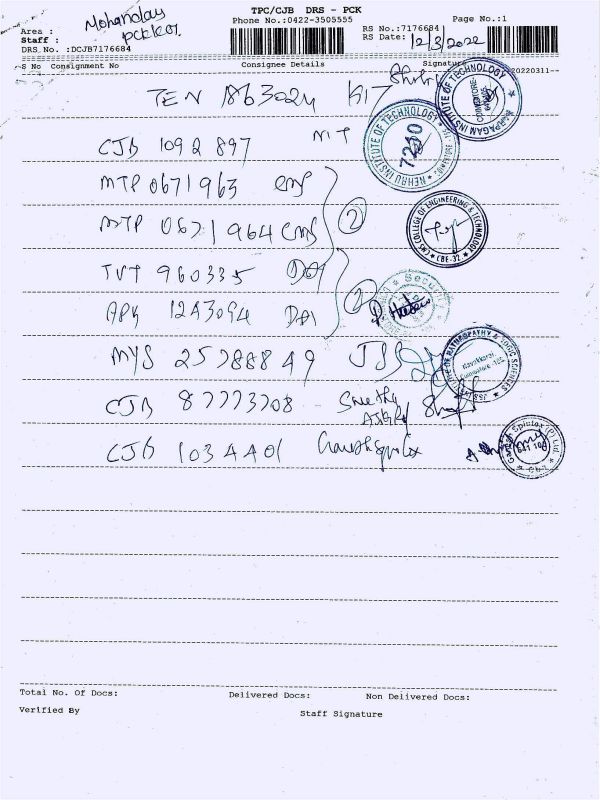 TPC/CJB DRS - PCK
Phone No.:0422-3505555
Area : Mohandas
Staff : Pckkot.
DRS No. :DCJB7176684
RS No.:7176684
RS Date: 12/3/2022
Page No.:1
S No Consignment No Consignee Details Signature 20220311--
TEN 1863024 KIT
KARPAGAM INSTITUTE OF TECHNOLOGY COIMBATORE
CJB 1092897 NIT
NEHRU INSTITUTE OF TECHNOLOGY
MTP 0671963 CMS
MTP 0671964 CMS
2
CMS COLLEGE OF ENGINEERING & TECHNOLOGY CBE-32
TVT 960335
APK 1243094
2
Security
MYS 25788849 JSS
JSS INSTITUTE OF NATUROPATHY & YOGIC SCIENCES
Navakkarai
CJB 87773708 Swetha
CJB 1034401 Ganesh Spintex
Ganesh Spintex (P) Ltd.
Total No. Of Docs: Delivered Docs: Non Delivered Docs:
Verified By Staff Signature